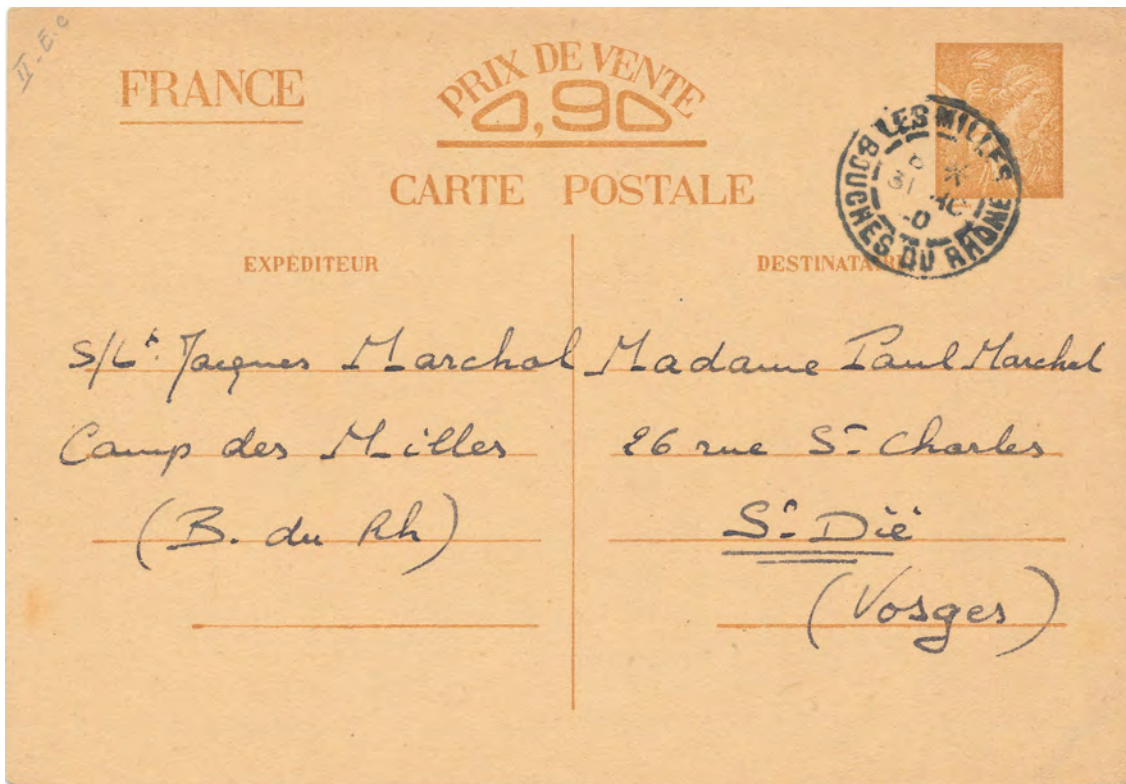 II - E.c
FRANCE
PRIX DE VENTE
0,90
CARTE POSTALE
LES MILLES
BOUCHES DU RHONE
31
EXPÉDITEUR
S/Lt. Jacques Marchal
Camp des Milles
(B. du Rh)
DESTINATAIRE
Madame Paul Marchal
26 rue St Charles
St Dié
(Vosges)